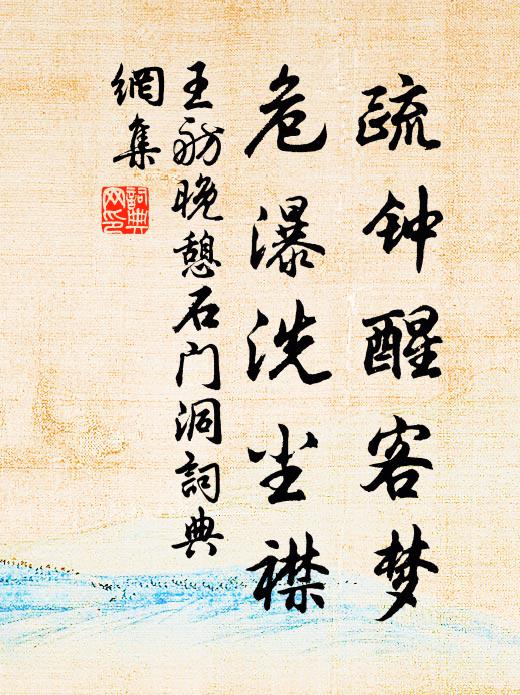 疏钟醒客梦
危瀑洗尘襟
王舫晚憩石门洞詞典
網集
詞典
网印